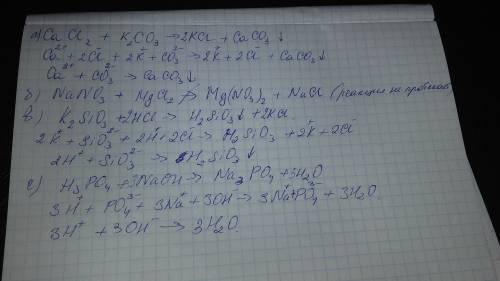 а) CaCl₂ + K₂CO₃ → 2KCl + CaCO₃↓
Ca²⁺ + 2Cl⁻ + 2K⁺ + CO₃²⁻ → 2K⁺ + 2Cl⁻ + CaCO₃↓
Ca²⁺ + CO₃²⁻ → CaCO₃↓
б) NaNO₃ + MgCl₂ ↛ Mg(NO₃)₂ + NaCl (реакция не
в) K₂SiO₃ + 2HCl → H₂SiO₃↓ + 2KCl
2K⁺ + SiO₃²⁻ + 2H⁺ + 2Cl⁻ → H₂SiO₃ + 2K⁺ + 2Cl⁻
2H⁺ + SiO₃²⁻ → H₂SiO₃↓
с) H₃PO₄ + 3NaOH → Na₃PO₄ + 3H₂O
3H⁺ + PO₄³⁻ + 3Na⁺ + 3OH⁻ → 3Na⁺ + PO₄³⁻ + 3H₂O
3H⁺ + 3OH⁻ → 3H₂O.